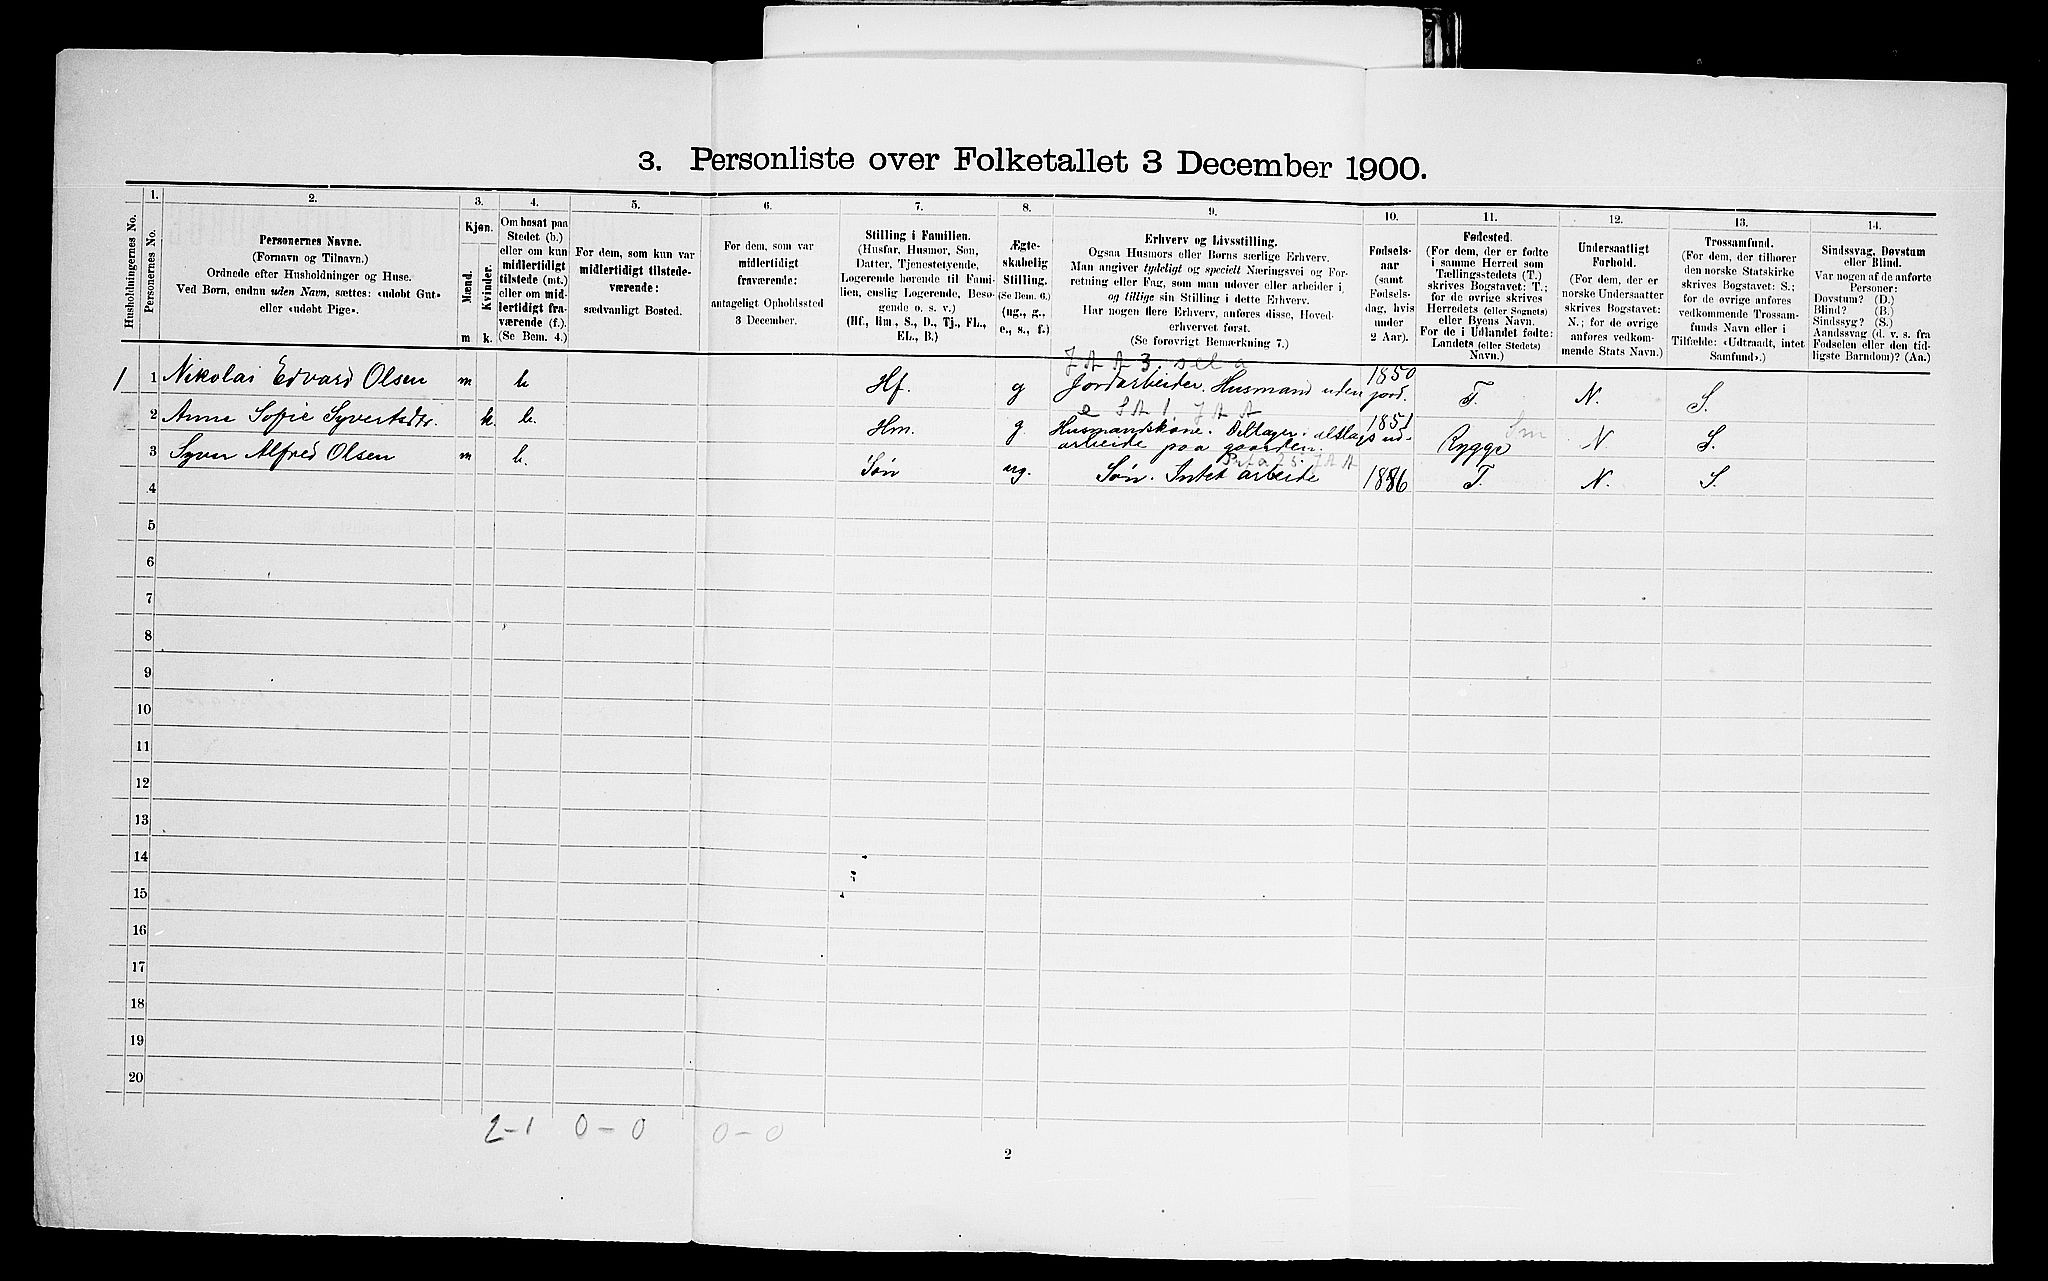 3. Personliste over Folketallet 3 December 1900.
Husholdningernes No.
1.
Personernes No.
2.
Personernes Navne.
(Fornavn og Tilnavn.)
Ordnede efter Husholdninger og Huse.
Ved Børn, endnu uden Navn, sættes: «udøbt Gut»
eller «udøbt Pige».
3.
Kjøn.
Mænd.
Kvinder.
m
k.
4.
Om bosat paa
Stedet (b.)
eller om kun
midlertidigt
tilstede (mt.)
eller om mid-
lertidigt fra-
værende (f.)
(Se Bem. 4.)
5.
For dem, som kun var
midlertidigt tilstede-
værende:
sædvanligt Bosted.
6.
For dem, som var
midlertidigt
fraværende:
antageligt Opholdssted
3 December.
7.
Stilling i Familien.
(Husfar, Husmor, Søn,
Datter, Tjenestetyende,
Logerende hørende til Fami-
lien, enslig Logerende, Besø-
gende o. s. v.)
(Hf., Hm., S., D., Tj., FL.,
EL., B.)
8.
Ægte-
skabelig
Stilling.
(Se Bem. 6.)
(ug., g.,
e., s., f.)
9.
Erhverv og Livsstilling.
Ogsaa Husmors eller Børns særlige Erhverv.
Man angiver tydeligt og specielt Næringsvei og For-
retning eller Fag, som man udøver eller arbeider i,
og tillige sin Stilling i dette Erhverv.
Har nogen flere Erhverv, anføres disse, Hoved-
erhvervet først.
(Se forøvrigt Bemærkning 7.)
10.
Fødsels-
aar
(samt
Fødsels-
dag, hvis
under
2 Aar).
11.
Fødested.
(For dem, der er fødte
i samme Herred som
Tællingsstedets (T.)
skrives Bogstavet: T.;
for de øvrige skrives
Herredets (eller Sognets)
eller Byens Navn.
For de i Udlandet fødte:
Landets (eller Stedets)
Navn.)
12.
Undersaatligt
Forhold.
(For dem, der er
norske Undersaatter
skrives Bogstavet:
N.; for de øvrige
anføres vedkom-
mende Stats Navn.)
13.
Trossamfund.
(For dem, der tilhører
den norske Statskirke
skrives Bogstavet: S.;
for de øvrige anføres
vedkommende Trossam-
funds Navn eller i
Tilfælde: «Udtraadt, intet
Samfund».)
14.
Sindssvag, Døvstum
eller Blind.
Var nogen af de anførte
Personer:
Døvstum? (D.)
Blind? (B.)
Sindssyg? (S.)
Aandssvag (d. v. s. fra
Fødselen eller den tid-
ligste Barndom)? (Aa.)
1 1 Nikolai Edvard Olsen m b. Hf. g Jordarbeider. Husmand uden jord. 1850 T. N. S.
2 Anne Sofie Syvertsdtr. k. b. Hm. g. Husmandskone. Deltager i alslags ud-
arbeide paa gaarden. 1851 Rygge N S.
3 Syver Alfred Olsen m b. Søn ug. Søn. Intet arbeide 1886 T. N. S.
4
5
6
7
8
9
10
11
12
13
14
15
16
17
18
19
20
2-1 0-0 0-0
2